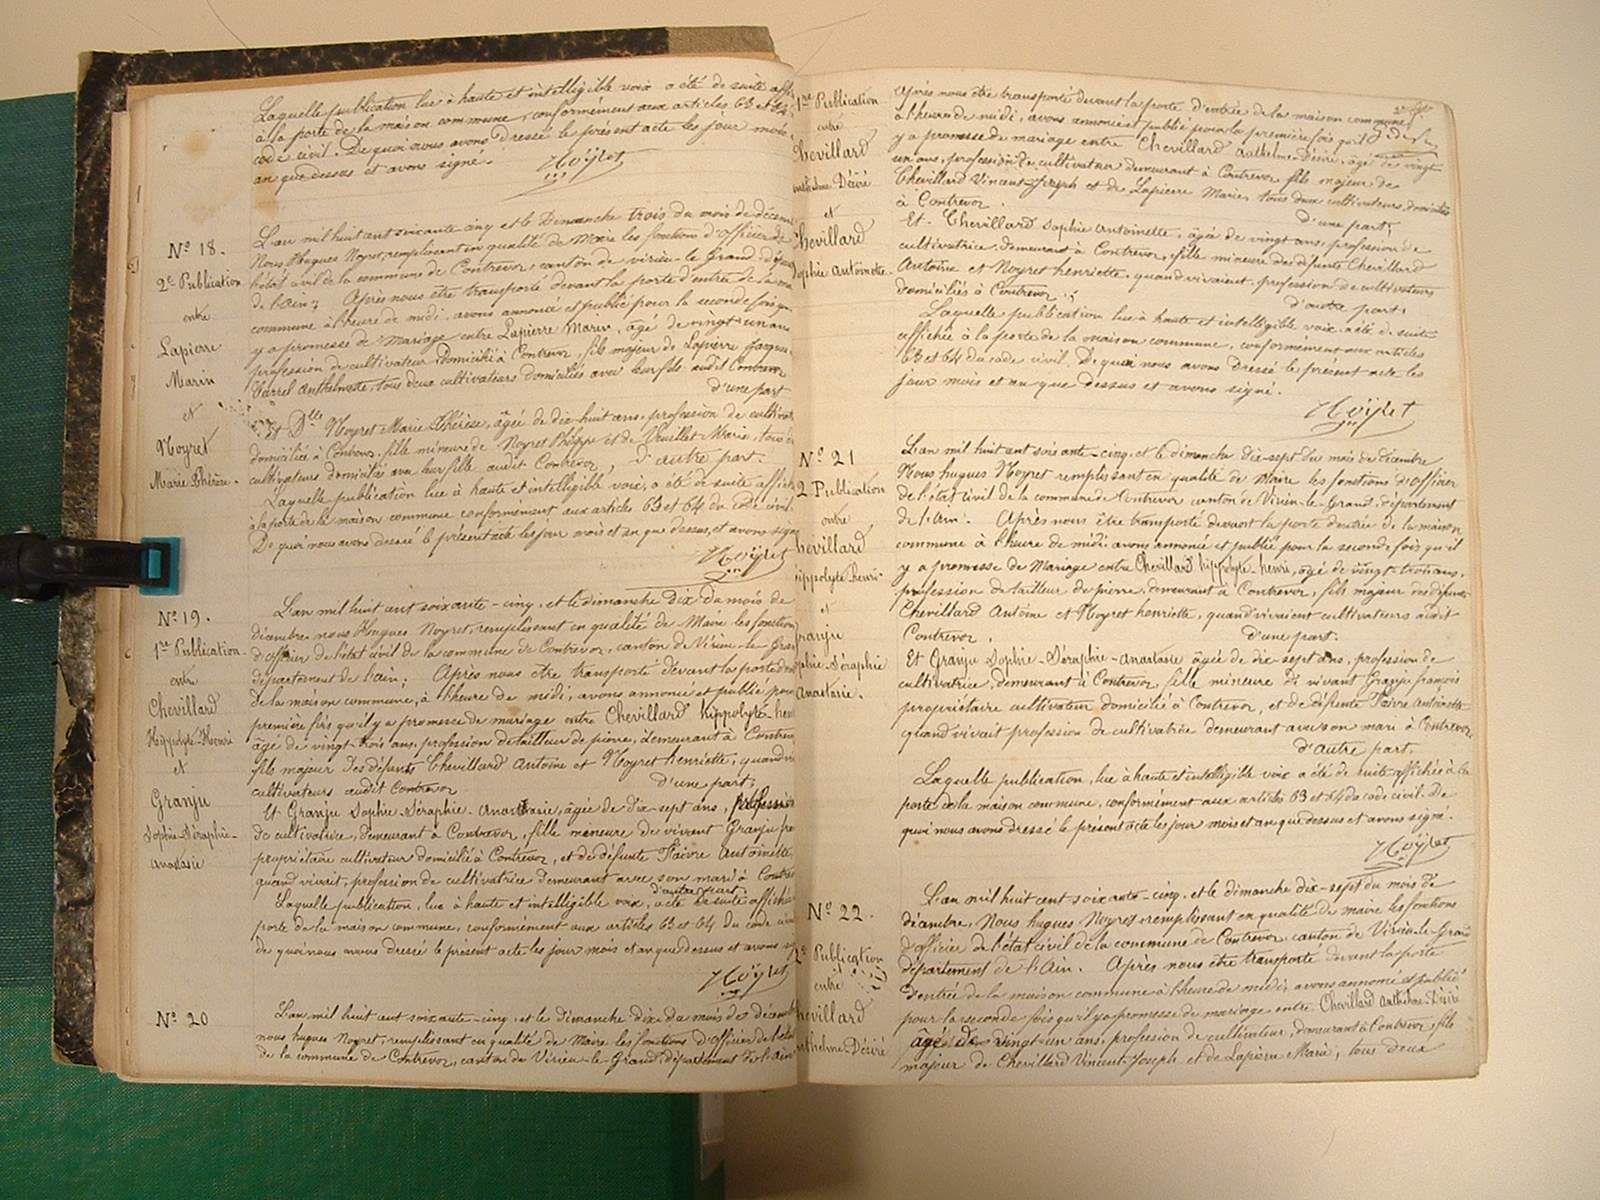 Laquelle publication lue à haute et intelligible voix a été de suite
à la porte de la maison commune, conformément aux articles 63 et 64
code civil. De quoi nous avons dressé le présent acte les jour mois
an que dessus et avons signé.
Noÿret
Nº 18.
2e Publication
entre
Lapierre
Marin
et
Noyret
Marie Thérèse.
L'an mil huit cent soixante cinq et le Dimanche trois du mois de décem
Nous Hugues Noyret, remplissant en qualité de Maire les fonctions d'officier de
l'état civil de la commune de Contrevoz, canton de Virieu-le-Grand,
de l'Ain; Après nous être transporté devant la porte d'entrée de la
commune à l'heure de midi, avons annoncé et publié pour la seconde fois
y a promesse de mariage entre Lapierre Marin, âgé de vingt-un ans
profession de cultivateur domicilié à Contrevoz, fils majeur de Lapierre Jacques
Carrel Anthelmette, tous deux cultivateurs domiciliés avec leur fils audit Contrevoz
d'une part
Et Dlle Noyret Marie Thérèse, âgée de dix huit ans, profession de
domiciliée à Contrevoz, fille mineure de Noyret Philippe et de Vuillet Marie, tous
cultivateurs domiciliés avec leur fille audit Contrevoz, d'autre part.
Laquelle publication lue à haute et intelligible voix, a été de suite
à la porte de la maison commune conformément aux articles 63 et 64 du code civil.
De quoi nous avons dressé le présent acte les jour mois et an que dessus, et avons
Noÿret
Nº 19.
1re Publication.
entre
Chevillard
Hippolyte-Henri
et
Granju
Sophie-Séraphie-
Anastasie
L'an mil huit cent soixante-cinq, et le dimanche dix du mois de
décembre nous Hugues Noyret, remplissant en qualité de Maire les fonctions
d'officier de l'état civil de la commune de Contrevoz, canton de Virieu-le-Grand
département de l'ain; Après nous être transporté devant la porte
de la maison commune, à l'heure de midi, avons annoncé et publié pour
première fois qu'il y a promesse de mariage entre Chevillard hippolyte-henri
âgé de vingt-trois ans, profession de tailleur de pierre, demeurant à Contrevoz
fils majeur des défunts Chevillard Antoine et Noyret henriette, quand
cultivateurs audit Contrevoz d'une part;
Et Granju Sophie-Séraphie-Anastasie, âgée de dix-sept ans, profession
de cultivatrice, demeurant à Contrevoz, fille mineure de vivant Granju
propriétaire cultivateur domicilié à Contrevoz, et de défunte Faivre Antoinette
quand vivait, profession de cultivatrice demeurant avec son mari à
d'autre part.
Laquelle publication, lue à haute et intelligible voix, a été de suite affichée
porte de la maison commune, conformément aux articles 63 et 64 du code
de quoi nous avons dressé le présent acte les jour mois et an que dessus et avons
Noÿret
Nº 20
L'an mil huit cent soixante-cinq, et le dimanche dix du mois de
nous hugues Noyret, remplissant en qualité de Maire les fonctions d'officier de
de la commune de Contrevoz, canton de Virieu-le-Grand, département de l'ain
1re Publication
entre
Chevillard
anthelme Désiré
et
Chevillard
Sophie Antoinette.
Après nous être transporté devant la porte d'entrée de la maison commune
à l'heure de midi, avons annoncé et publié pour la première fois qu'il
y a promesse de mariage entre Chevillard Anthelme-Désiré, âgé de vingt
un ans, profession de cultivateur demeurant à Contrevoz fils majeur de
Chevillard Vincent-Joseph et de Lapierre Marie, tous deux cultivateurs domiciliés
à Contrevoz. d'une part;
Et Chevillard Sophie Antoinette, âgée de vingt ans, profession de
cultivatrice, demeurant à Contrevoz, fille mineure des défunts Chevillard
Antoine et Noyret henriette, quand vivaient, profession de cultivateurs
domiciliés à Contrevoz. d'autre part.
Laquelle publication lue à haute et intelligible voix a été de suite
affichée à la porte de la maison commune, conformément aux articles
63 et 64 du code civil. De quoi nous avons dressé le présent acte les
jour mois et an que dessus et avons signé.
Noÿret
Nº 21
2 Publication
entre
Chevillard
hippolyte-henri
et
Granju
Sophie-Séraphie
Anastasie.
L'an mil huit cent soixante-cinq, et le dimanche dix-sept du mois de décembre
Nous hugues Noyret remplissant en qualité de Maire les fonctions d'officier
de l'état civil de la commune de Contrevoz canton de Virieu-le-Grand, département
de l'ain. Après nous être transporté devant la porte d'entrée de la maison
commune à l'heure de midi avons annoncé et publié pour la seconde fois qu'il
y a promesse de Mariage entre Chevillard hippolyte-henri, âgé de vingt-trois ans,
profession de tailleur de pierre, demeurant à Contrevoz, fils majeur des défunts
Chevillard Antoine et Noyret henriette, quand vivaient cultivateurs audit
Contrevoz. d'une part.
Et Granju Sophie-Séraphie-Anastasie âgée de dix-sept ans, profession de
cultivatrice, demeurant à Contrevoz, fille mineure de vivant Granju françois
propriétaire cultivateur domicilié à Contrevoz, et de défunte Faivre Antoinette
quand vivait profession de cultivatrice demeurant avec son mari à Contrevoz
d'autre part.
Laquelle publication, lue à haute et intelligible voix a été de suite affichée à la
porte de la maison commune, conformément aux articles 63 et 64 du code civil. De
quoi nous avons dressé le présent acte les jour mois et an que dessus et avons signé.
Noÿret
Nº 22.
2e Publication
entre
Chevillard
Anthelme-Désiré
L'an mil huit cent soixante-cinq, et le dimanche dix-sept du mois de
décembre, Nous hugues Noyret, remplissant en qualité de maire les fonctions
d'officier de l'état civil de la commune de Contrevoz, canton de Virieu-le-Grand
département de l'Ain. Après nous être transporté devant la porte
d'entrée de la maison commune à l'heure de midi, avons annoncé et publié
pour la seconde fois qu'il y a promesse de mariage entre Chevillard Anthelme-Désiré
âgé de vingt-un ans, profession de cultivateur, demeurant à Contrevoz, fils
majeur de Chevillard Vincent-Joseph et de Lapierre Marie, tous deux